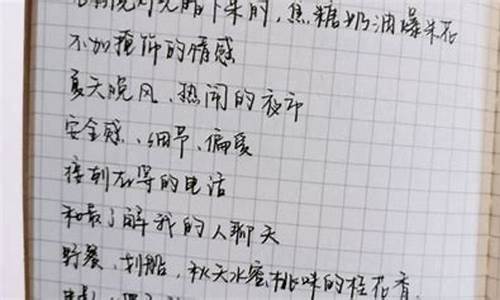 灯光暗下来的,焦糖奶油爆米花
不加掩饰的情感
夏天晚风、热闹的夜市
安全感、细节、偏爱
接到在等的电话
和最了解我的人聊天
野餐、划船,秋天水蜜桃味的桂花香